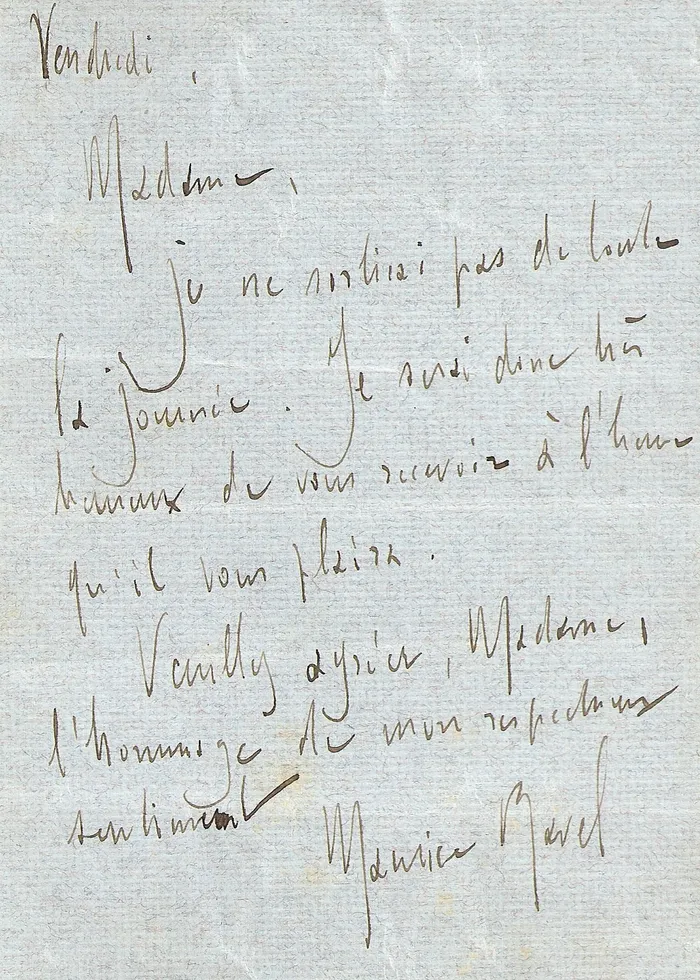 Vendredi,
Madame,
je ne sortirai pas de toute
la journée. Je serai donc très
heureux de vous recevoir à l'heure
qu'il vous plaira.
Veuillez agréer, Madame,
l'hommage de mon respectueux
sentiment
Maurice Ravel